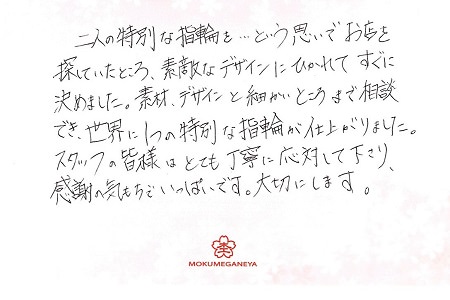 二人の特別な指輪を…という思いでお店を
探していたところ、素敵なデザインにひかれてすぐに
決めました。素材、デザインと細かいところまで相談
でき、世界に1つの特別な指輪が仕上がりました。
スタッフの皆様はとても丁寧に応対して下さり、
感謝の気もちでいっぱいです。大切にします。
MOKUMEGANEYA